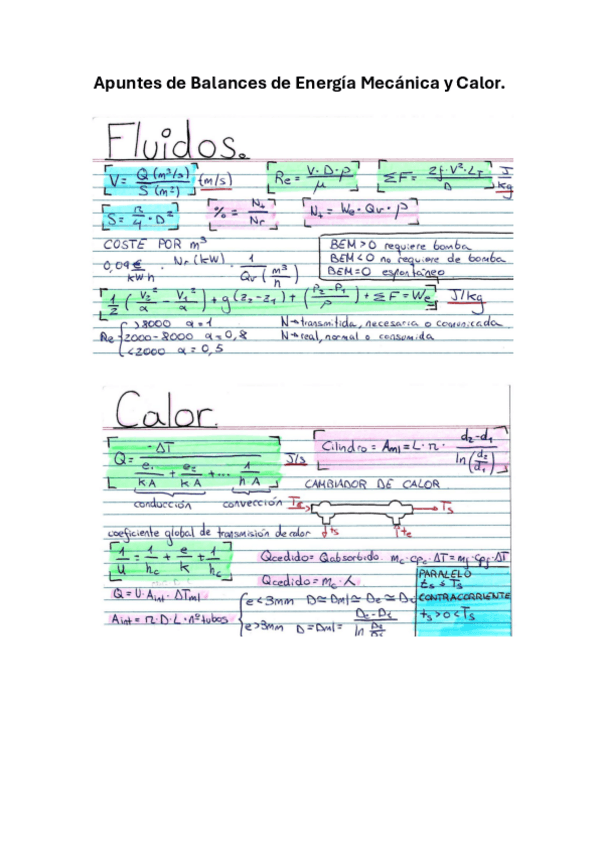 Apuntes de Balances de Energía Mecánica y Calor.
Fluidos.
V = Q (m³/s) / S (m²) (m/s)
Re = V·D·ρ / μ
ΣF = 2f·V²·LT / D J/kg
S = π/4 · D²
% = Nt / Nr
Nt = We · Qv · ρ
COSTE POR m³
0,09 € / kW·h · Nr (kW) · 1 / Qv (m³/h)
BEM > 0 requiere bomba
BEM < 0 no requiere de bomba
BEM = 0 espontáneo
1/2 (V2²/α − V1²/α) + g(z2 − z1) + (P2 − P1 / ρ) + ΣF = We J/kg
Re { >8000 α = 1
2000 - 8000 α = 0,8
<2000 α = 0,5
N→transmitida, necesaria o comunicada
N→real, normal o consumida
Calor.
Q = -ΔT / (e1/kA + e2/kA + ... 1/h·A) J/s
Cilindro = Aml = L · π · d2 - d1 / ln(d2/d1)
conducción convección
CAMBIADOR DE CALOR
Te Ts
ts te
coeficiente global de transmisión de calor
1/u = 1/hc + e/k + 1/hc
Qcedido = Qabsorbido. mc · cpc · ΔT = mf · cpf · ΔT
Qcedido = mc · λ
Q = U · Aint · ΔTml
Aint = π · D · L · nº tubos
e < 3mm D ≃ Dml ≃ De ≃ Di
e > 3mm D = Dml = De - Di / ln De/Di
PARALELO
ts ≠ Ts
CONTRACORRIENTE
ts > o < Ts